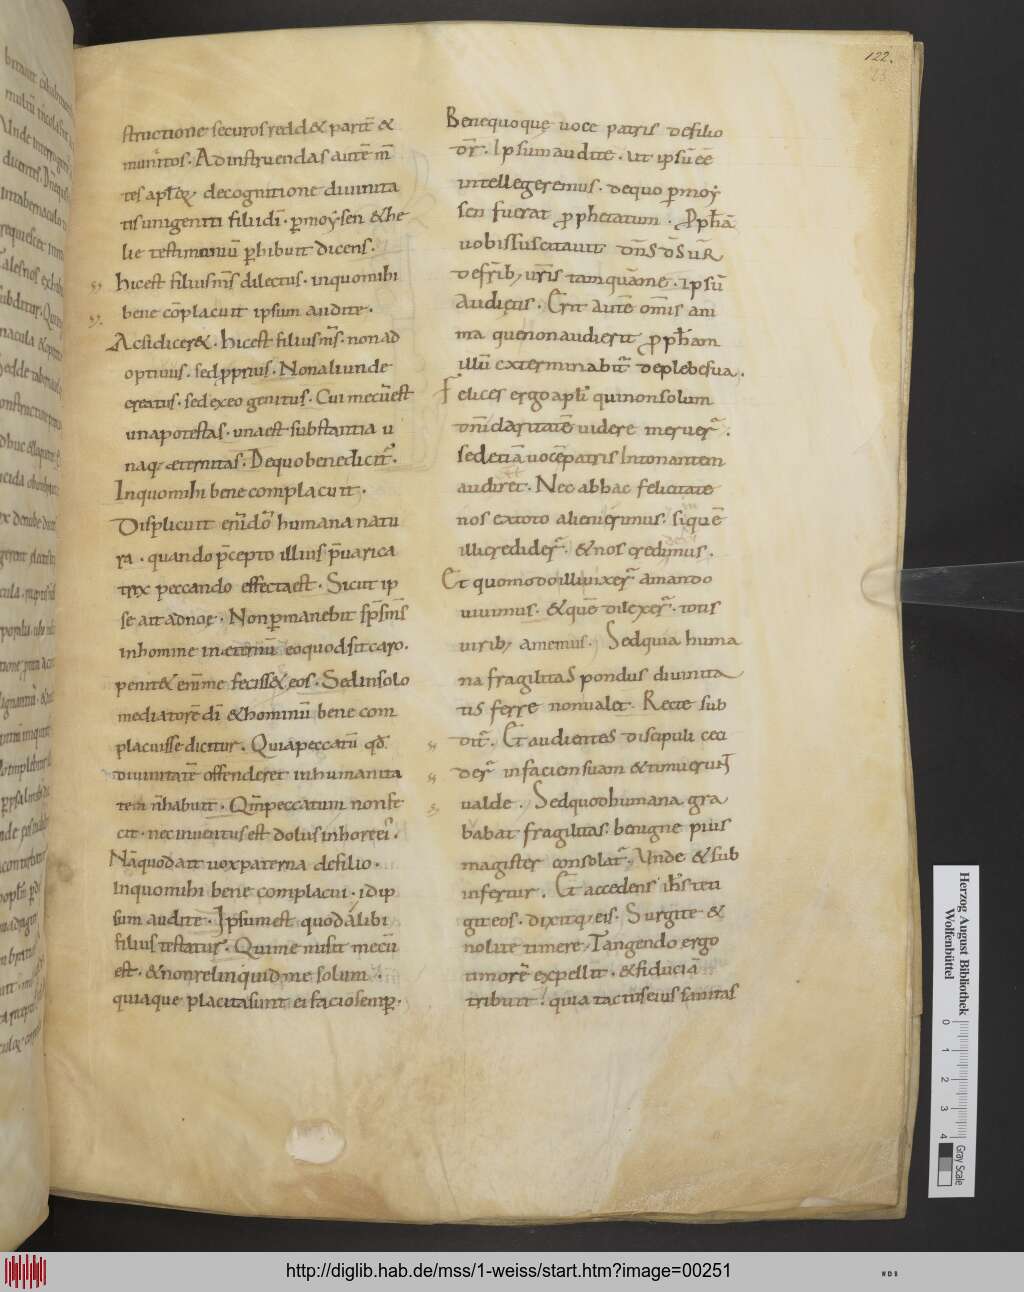 122.
23
structione securos redd& parit̄ &
munitos. Ad instruendas aute m̄
tes aptloꝝ decognitione diuinita
tis unigeniti filii di. p̱ moysen & he
lie testimoniū p̱hibuit dicens.
hicest filiusm̄s dilectus. inquomihi
bene cōplacuit ipsum audite.
Acsidicer&. hicest filiusm̄s. nonad
optiuus. sed pprius. Nonaliunde
creatus. sedexeo genitus. Cui mecūest
unapotestas. unaest substantia u
naq; eternitas. Dequobenedicit̄.
Inquomihi bene complacuit.
Displicuit eni do humana natu
ra. quando p̄cepto illius p̄uarica
trix peccando effectaest. Sicut ip
se ait adnoe. Nonp̱manebit sp̄sm̄s
inhomine ineternū eoquodsitcaro.
penit& enīme fecisse eos. Sedinsolo
mediatorē di & hominū bene com
placuisse dicitur. Quiapeccatū qd
diuinitatē offenderet inhumanita
tem n̄habuit. Qm̄peccatum nonfe
cit. necinuentusest dolusinhoreei.
Nāquodait uoxpaterna defilio.
Inquomihi bene complacui. idip
sum audite. Ipsumest quodalibi
filius testatur. Quime misit mecū
est. & nonrelinquidme solum.
quiaque placitasunt ei faciosemp̱.
Benequoque uoce patris defilio
dr̄. Ipsumaudite. ut ipsū eē
intellegeremus. dequo p̱moy
sen fuerat prophetatum. P̱ph̄ā
uobissuscitauit dn̄s ds ur̄
defrib; uris tanquāme. ipsū
audietis. Erit autē om̄is ani
ma quenonaudierit proph̄am
illū exterminabit̄ deplebesua.
Felices ergoaptli quinonsolum
dn̄i claritatē uidere meruer̄.
sedetiā uocēpatris Intonantem
audire. Nec abhac felicitate
nos extoto alienierimus. siquē
illicredider̄. & nos credimus.
Et quomodoilliuixer̄ amando
uiuimus. & quē dilexer̄. totis
uirib; amemus. Sedquia huma
na fragilitas pondus diuinita
tis ferre nonualet. Recte sub
dit̄. Et audientes discipuli ceci
der̄ infaciemsuam & timuerunt
ualde. Sedquodhumana gra
babat fragilitas. benigne pius
magister consolat̄. Unde & sub
infertur. Et accedens ih̄s teti
git eos. dixitq; eis. Surgite &
nolite timere. Tangendo ergo
timorē expellit. & fiduciā
tribuit. quia tactuseius sanitas
Herzog August Bibliothek
Wolfenbüttel
0 1 2 3 4
Gray Scale
http://diglib.hab.de/mss/1-weiss/start.htm?image=00251